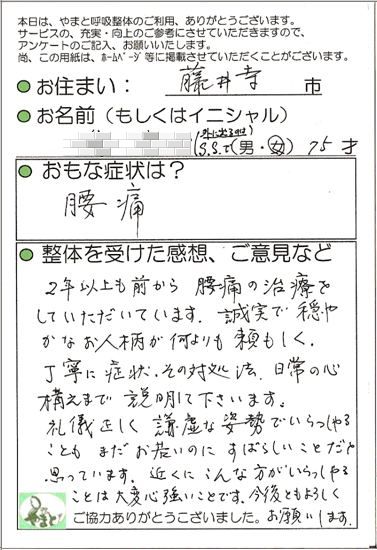 本日は、やまと呼吸整体のご利用、ありがとうございます。
サービスの、充実・向上のご参考にさせていただきますので、
アンケートのご記入、お願いいたします。
尚、この用紙は、ホームページ等に掲載させていただくことがございます。
お住まい： 藤井寺 市
お名前（もしくはイニシャル）
S.S.で(男・女) 75 才
おもな症状は？
腰痛
整体を受けた感想、ご意見など
2年以上も前から 腰痛の治療を
していただいています。誠実で穏や
かなお人柄が何よりも頼もしく、
丁寧に症状、その対処法、日常の心
構えまで説明して下さいます。
礼儀正しく謙虚な姿勢でいらっしゃる
ことも まだお若いのに すばらしいことだと
思っています。近くにこんな方がいらっしゃる
ことは大変心強いことです。今後ともよろしく
お願いします。
ご協力ありがとうございました。
やまと